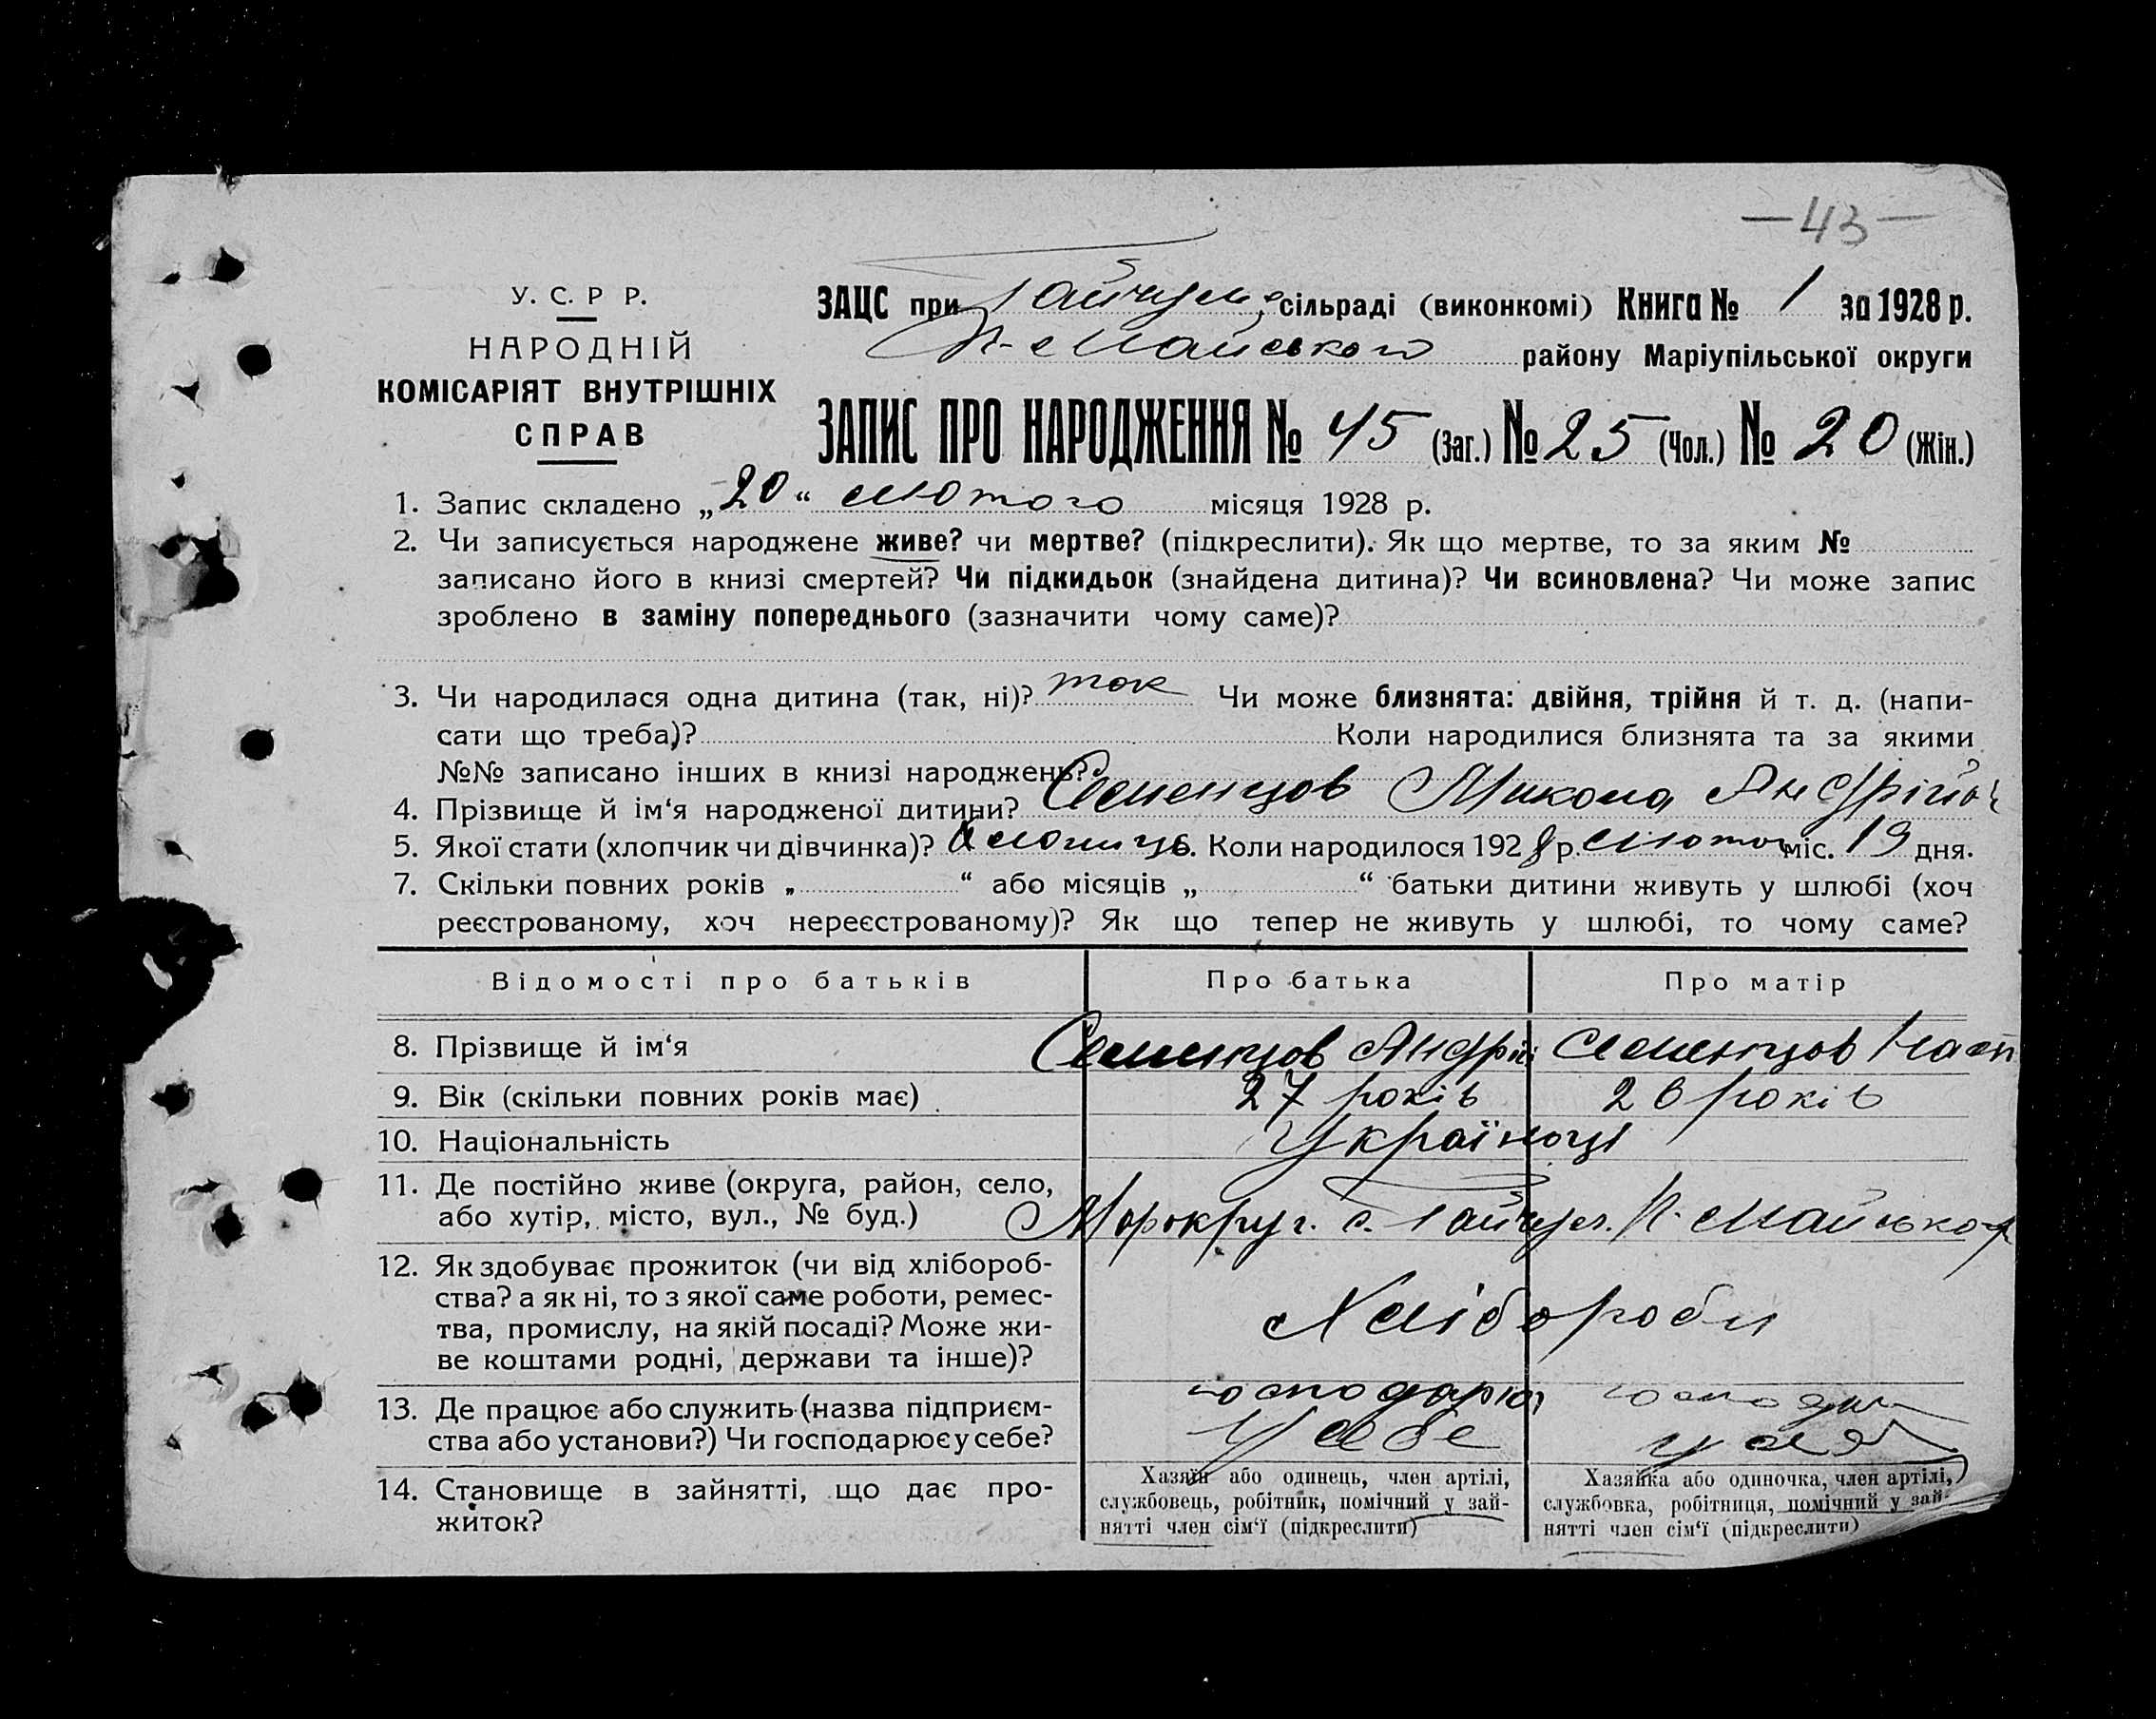 —43—
У. С. Р Р.
НАРОДНІЙ
КОМІСАРІЯТ ВНУТРІШНІХ
СПРАВ
ЗАЦС при Гайчул. сільраді (виконкомі) Книга № 1 за 1928 р.
П-Майського району Маріупільської округи
ЗАПИС ПРО НАРОДЖЕННЯ № 45 (Заг.) № 25 (Чол.) № 20 (Жін.)
1. Запис складено „20“ лютого місяця 1928 р.
2. Чи записується народжене живе? чи мертве? (підкреслити). Як що мертве, то за яким №
записано його в книзі смертей? Чи підкидьок (знайдена дитина)? Чи всиновлена? Чи може запис
зроблено в заміну попереднього (зазначити чому саме)?
3. Чи народилася одна дитина (так, ні)? так Чи може близнята: двійня, трійня й т. д. (напи-
сати що треба)? Коли народилися близнята та за якими
№№ записано інших в книзі народжень?
4. Прізвище й ім‘я народженої дитини? Семенцов Микола Андрійов
5. Якої стати (хлопчик чи дівчинка)? Хлопиць 6. Коли народилося 1928 р. лютого міс. 19 дня.
7. Скільки повних років „ “ або місяців „ “ батьки дитини живуть у шлюбі (хоч
реєстрованому, хоч нереєстрованому)? Як що тепер не живуть у шлюбі, то чому саме?
Відомості про батьків Про батька Про матір
8. Прізвище й ім‘я Семенцов Андрій Семенцов Наст
9. Вік (скільки повних років має) 27 років 26 років
10. Національність Українці
11. Де постійно живе (округа, район, село,
або хутір, місто, вул., № буд.) Марокруг. с. Гайчул. П. Майського р
12. Як здобуває прожиток (чи від хлібороб-
ства? а як ні, то з якої саме роботи, ремес-
тва, промислу, на якій посаді? Може жи-
ве коштами родні, держави та інше)? Хлібороби
13. Де працює або служить (назва підприєм-
ства або установи?) Чи господарює у себе? господарює у себе
14. Становище в зайнятті, що дає про-
житок?
Хазяїн або одинець, член артілі,
службовець, робітник, помічний у зай-
нятті член сім‘ї (підкреслити)
Хазяйка або одиночка, член артілі,
службовка, робітниця, помічний у зай-
нятті член сім‘ї (підкреслити)